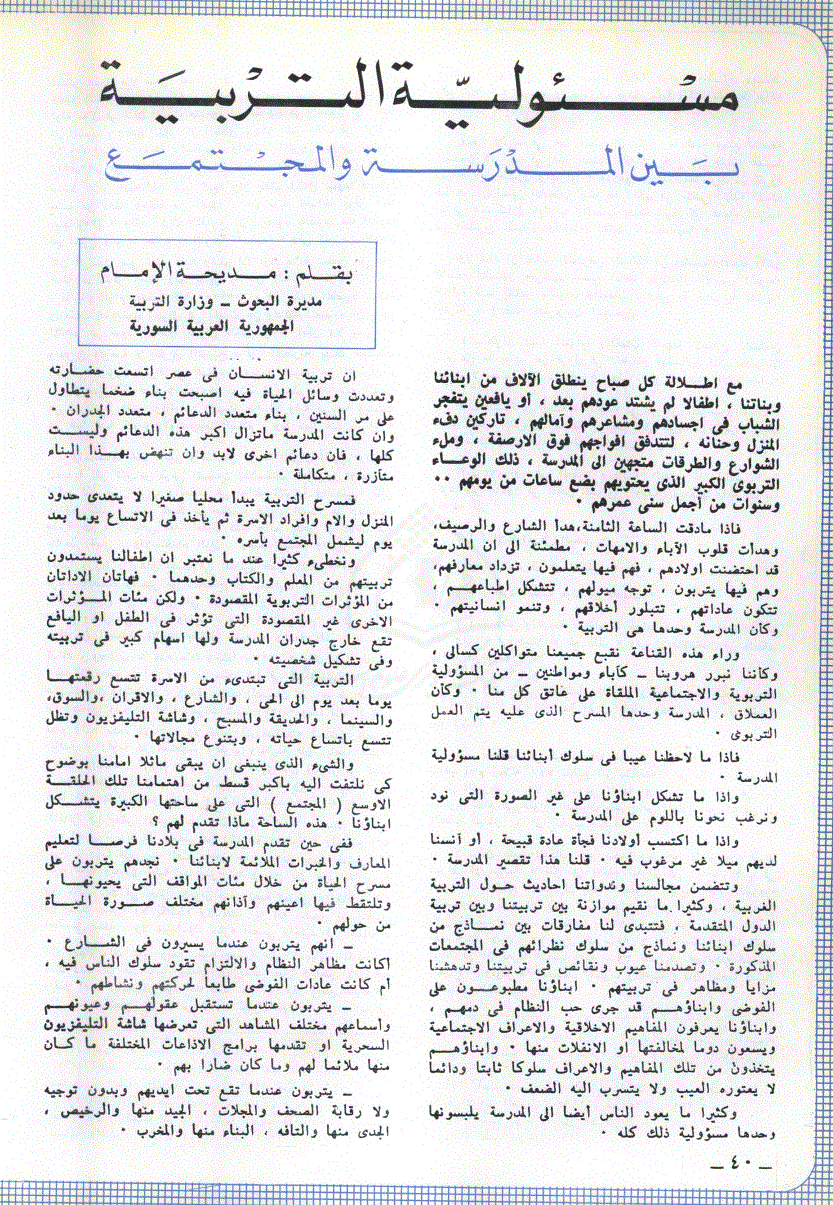 مسئولية التربية
بين المدرسة والمجتمع
بقلم : مديحة الإمام
مديرة البحوث ــ وزارة التربية
الجمهورية العربية السورية
مع اطلالة كل صباح ينطلق الآلاف من ابنائنا
وبناتنا ، اطفالا لم يشتد عودهم بعد ، أو يافعين يتفجر
الشباب فى اجسادهم ومشاعرهم وآمالهم ، تاركين دفء
المنزل وحنانه ، لتتدفق افواجهم فوق الارصفة ، وملء
الشوارع والطرقات متجهين الى المدرسة ، ذلك الوعاء
التربوى الكبير الذى يحتويهم بضع ساعات من يومهم ٠٠
وسنوات من أجمل سنى عمرهم ٠
فاذا مادقت الساعة الثامنة،هدأ الشارع والرصيف،
وهدأت قلوب الآباء والامهات ، مطمئنة الى ان المدرسة
قد احتضنت اولادهم ، فهم فيها يتعلمون ، تزداد معارفهم،
وهم فيها يتربون ، توجه ميولهم ، تتشكل اطباعهم ،
تتكون عاداتهم ، تتبلور أخلاقهم ، وتنمو انسانيتهم ٠
وكأن المدرسة وحدها هى التربية ٠
وراء هذه القناعة نقبع جميعنا متواكلين كسالى ،
وكأننا نبرر هروبنا ــ كآباء ومواطنين ــ من المسؤولية
التربوية والاجتماعية الملقاة على عاتق كل منا ٠ وكأن
العملاق ، المدرسة وحدها المسرح الذى عليه يتم العمل
التربوى ٠
فاذا ما لاحظنا عيبا فى سلوك أبنائنا قلنا مسؤولية
المدرسة ٠
واذا ما تشكل ابناؤنا على غير الصورة التى نود
ونرغب نحونا باللوم على المدرسة ٠
واذا ما اكتسب أولادنا فجأة عادة قبيحة ، أو آنسنا
لديهم ميلا غير مرغوب فيه ٠ قلنا هذا تقصير المدرسة ٠
وتتضمن مجالسنا وندواتنا احاديث حول التربية
الغربية ، وكثيرا ما نقيم موازنة بين تربيتنا وبين تربية
الدول المتقدمة ، فتتبدى لنا مفارقات بين نماذج من
سلوك ابنائنا ونماذج من سلوك نظرائهم فى المجتمعات
المذكورة ٠ وتصدمنا عيوب ونقائص فى تربيتنا وتدهشنا
مزايا ومظاهر فى تربيتهم ٠ ابناؤنا مطبوعون على
الفوضى وابناؤهم قد جرى حب النظام فى دمهم ،
وابناؤنا يعرفون المفاهيم الاخلاقية والاعراف الاجتماعية
ويسعون دوما لمخالفتها أو الانفلات منها ٠ وابناؤهم
يتخذون من تلك المفاهيم والاعراف سلوكا ثابتا ودائما
لا يعتوره العيب ولا يتسرب اليه الضعف ٠
وكثيرا ما يعود الناس أيضا الى المدرسة يلبسونها
وحدها مسؤولية ذلك كله ٠
ان تربية الانسان فى عصر اتسعت حضارته
وتعددت وسائل الحياة فيه اصبحت بناء ضخما يتطاول
على مر السنين ، بناء متعدد الدعائم ، متعدد الجدران ٠
وان كانت المدرسة ماتزال اكبر هذه الدعائم وليست
كلها ، فان دعائم اخرى لابد وان تنهض بهذا البناء
متآزرة ، متكاملة ٠
فمسرح التربية يبدأ محليا صغيرا لا يتعدى حدود
المنزل والام وافراد الاسرة ثم يأخذ فى الاتساع يوما بعد
يوم ليشمل المجتمع بأسره ٠
ونخطىء كثيرا عند ما نعتبر ان اطفالنا يستمدون
تربيتهم من المعلم والكتاب وحدهما ٠ فهاتان الاداتان
من المؤثرات التربوية المقصودة ٠ ولكن مئات المؤثرات
الاخرى غير المقصودة التى تؤثر فى الطفل او اليافع
تقع خارج جدران المدرسة ولها اسهام كبير فى تربيته
وفى تشكيل شخصيته ٠
التربية التى تبتدىء من الاسرة تتسع رقعتها
يوما بعد يوم الى الحى ، والشارع ، والاقران ،والسوق،
والسينما ، والحديقة والمسبح ، وشاشة التليفزيون وتظل
تتسع باتساع حياته ، وبتنوع مجالاتها ٠
والشىء الذى ينبغى ان يبقى ماثلا امامنا بوضوح
كى نلتفت اليه باكبر قسط من اهتمامنا تلك الحلقة
الاوسع ( المجتمع ) التى على ساحتها الكبيرة يتشكل
ابناؤنا ٠ هذه الساحة ماذا تقدم لهم ؟
ففى حين تقدم المدرسة فى بلادنا فرصا لتعليم
المعارف والخبرات الملائمة لابنائنا ٠ نجدهم يتربون على
مسرح الحياة من خلال مئات المواقف التى يحيونها ،
وتلتقط فيها اعينهم وآذانهم مختلف صورة الحياة
من حولهم ٠
ــ انهم يتربون عندما يسيرون فى الشارع ٠
أكانت مظاهر النظام والالتزام تقود سلوك الناس فيه ،
أم كانت عادات الفوضى طابعا لحركتهم ونشاطهم ٠
ــ يتربون عندما تستقبل عقولهم وعيونهم
وأسماعهم مختلف المشاهد التى تعرضها شاشة التليفزيون
السحرية او تقدمها برامج الاذاعات المختلفة ما كان
منها ملائما لهم وما كان ضارا بهم ٠
ــ يتربون عندما تقع تحت ايديهم وبدون توجيه
ولا رقابة الصحف والمجلات ، الجيد منها والرخيص ،
الجدى منها والتافه ، البناء منها والمخرب ٠
ــ ٤٠ ــ